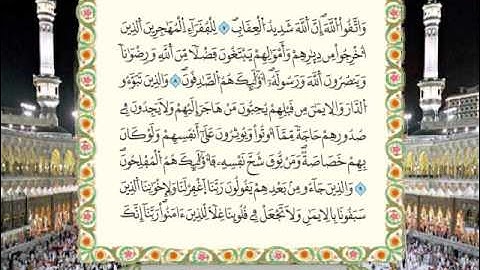 وَاتَّقُوا اللَّهَ إِنَّ اللَّهَ شَدِيدُ الْعِقَابِ ٧ لِلْفُقَرَاءِ الْمُهَاجِرِينَ الَّذِينَ
أُخْرِجُوا مِن دِيَارِهِمْ وَأَمْوَالِهِمْ يَبْتَغُونَ فَضْلًا مِّنَ اللَّهِ وَرِضْوَانًا
وَيَنصُرُونَ اللَّهَ وَرَسُولَهُ أُوْلَٰئِكَ هُمُ الصَّادِقُونَ ٨ وَالَّذِينَ تَبَوَّءُو
الدَّارَ وَالْإِيمَٰنَ مِن قَبْلِهِمْ يُحِبُّونَ مَنْ هَاجَرَ إِلَيْهِمْ وَلَا يَجِدُونَ فِي
صُدُورِهِمْ حَاجَةً مِّمَّا أُوتُوا وَيُؤْثِرُونَ عَلَىٰ أَنفُسِهِمْ وَلَوْ كَانَ
بِهِمْ خَصَاصَةٌ وَمَن يُوقَ شُحَّ نَفْسِهِ فَأُوْلَٰئِكَ هُمُ الْمُفْلِحُونَ
٩ وَالَّذِينَ جَاءُو مِنْ بَعْدِهِمْ يَقُولُونَ رَبَّنَا اغْفِرْ لَنَا وَلِإِخْوَٰنِنَا الَّذِينَ
سَبَقُونَا بِالْإِيمَٰنِ وَلَا تَجْعَلْ فِي قُلُوبِنَا غِلًّا لِّلَّذِينَ ءَامَنُوا رَبَّنَا إِنَّكَ